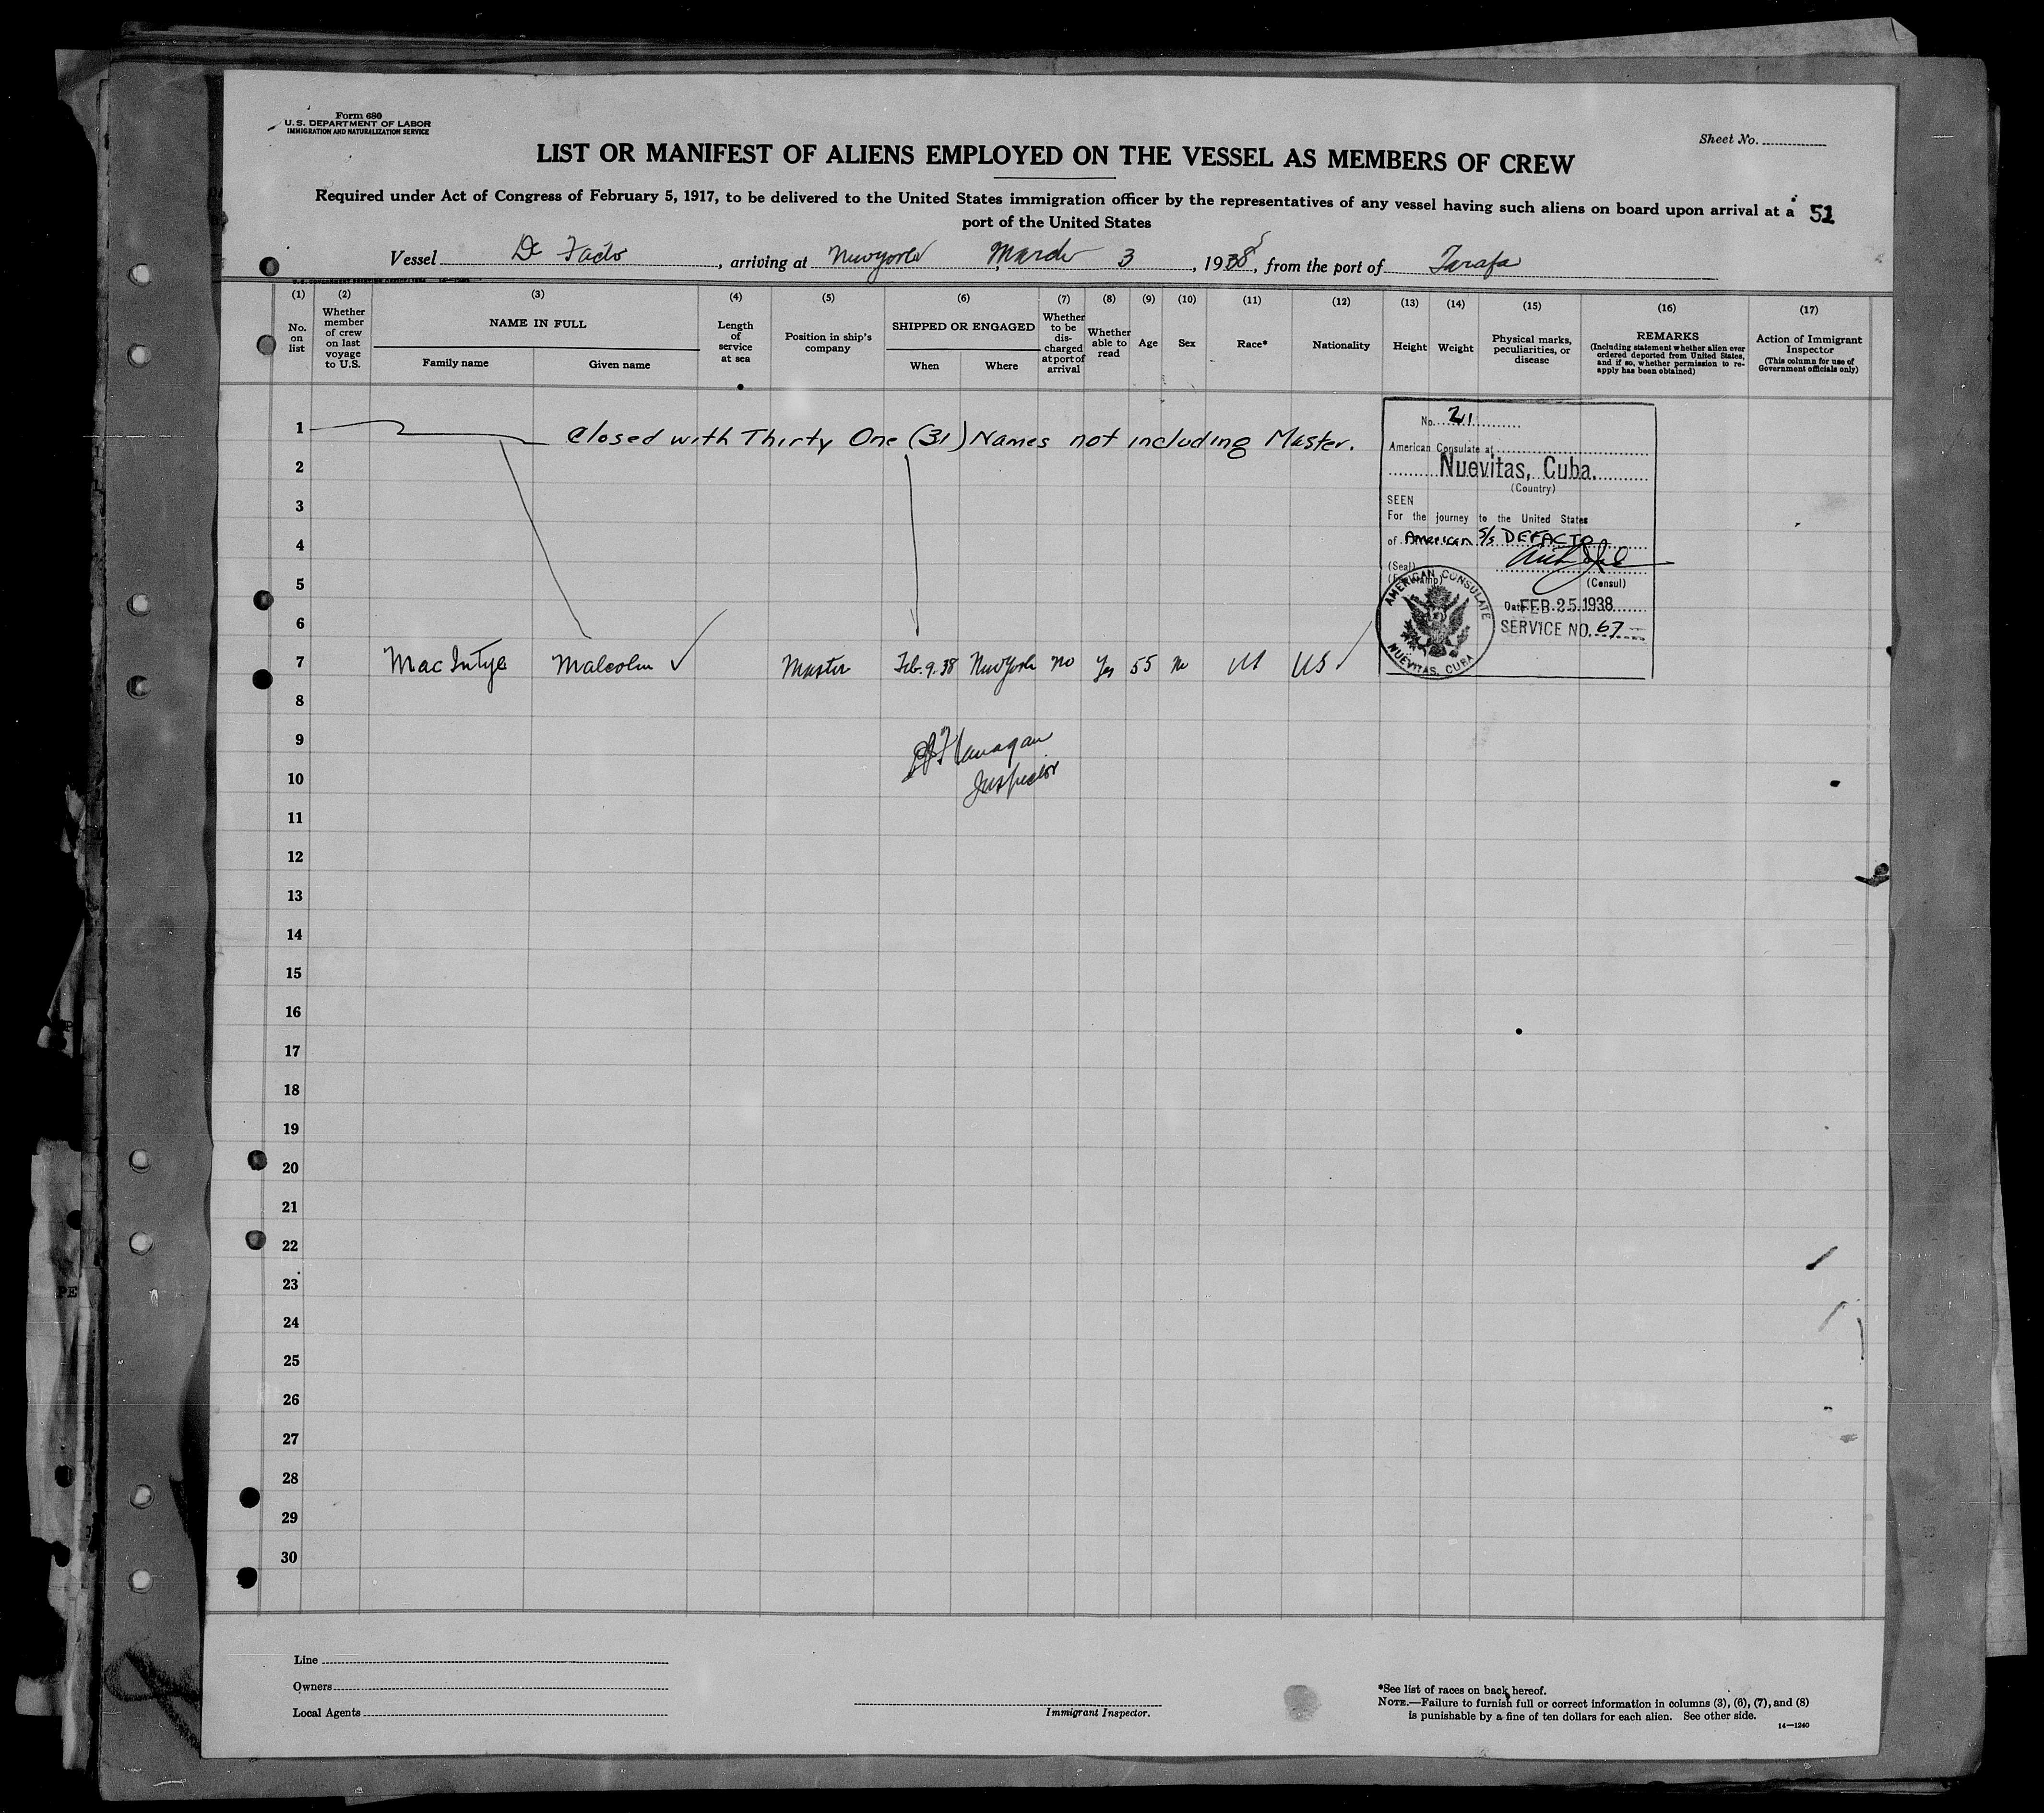 Form 680
U.S. DEPARTMENT OF LABOR
IMMIGRATION AND NATURALIZATION SERVICE
Sheet No.
LIST OR MANIFEST OF ALIENS EMPLOYED ON THE VESSEL AS MEMBERS OF CREW
Required under Act of Congress of February 5, 1917, to be delivered to the United States immigration officer by the representatives of any vessel having such aliens on board upon arrival at a
port of the United States
51
Vessel De Facto, arriving at New York March 3, 1938, from the port of Tarafa
(1) (2) (3) (4) (5) (6) (7) (8) (9) (10) (11) (12) (13) (14) (15) (16) (17)
No. on list
Whether member of crew on last voyage to U.S.
NAME IN FULL
Family name
Given name
Length of service at sea
Position in ship's company
SHIPPED OR ENGAGED
When
Where
Whether to be discharged at port of arrival
Whether able to read
Age
Sex
Race*
Nationality
Height
Weight
Physical marks, peculiarities, or disease
REMARKS
(Including statement whether alien ever ordered deported from United States, and if so, whether permission to re-apply has been obtained)
Action of Immigrant Inspector
(This column for use of Government officials only)
1 Closed with Thirty One (31) Names not including Master.
2
3
4
5
6
7 MacIntye Malcolm Master Feb. 9. 38 New York no Yes 55 M US
8
9
10
11
12
13
14
15
16
17
18
19
20
21
22
23
24
25
26
27
28
29
30
No. 21
American Consulate at
Nuevitas, Cuba.
(Country)
SEEN
For the journey to the United States
of American S/s DEFACTO
(Seal)
(Consul)
Date FEB. 25. 1938
SERVICE NO. 67
AMERICAN CONSULATE
NUEVITAS, CUBA
Flanagan
Inspector
Line
Owners
Local Agents
Immigrant Inspector.
*See list of races on back hereof.
NOTE.—Failure to furnish full or correct information in columns (3), (6), (7), and (8)
is punishable by a fine of ten dollars for each alien. See other side.
14—1240